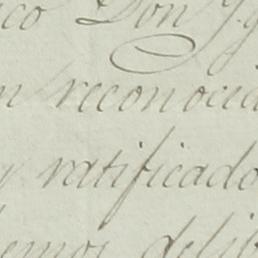 ico Don Yg
n reconocid
y ratificado
hemos delib